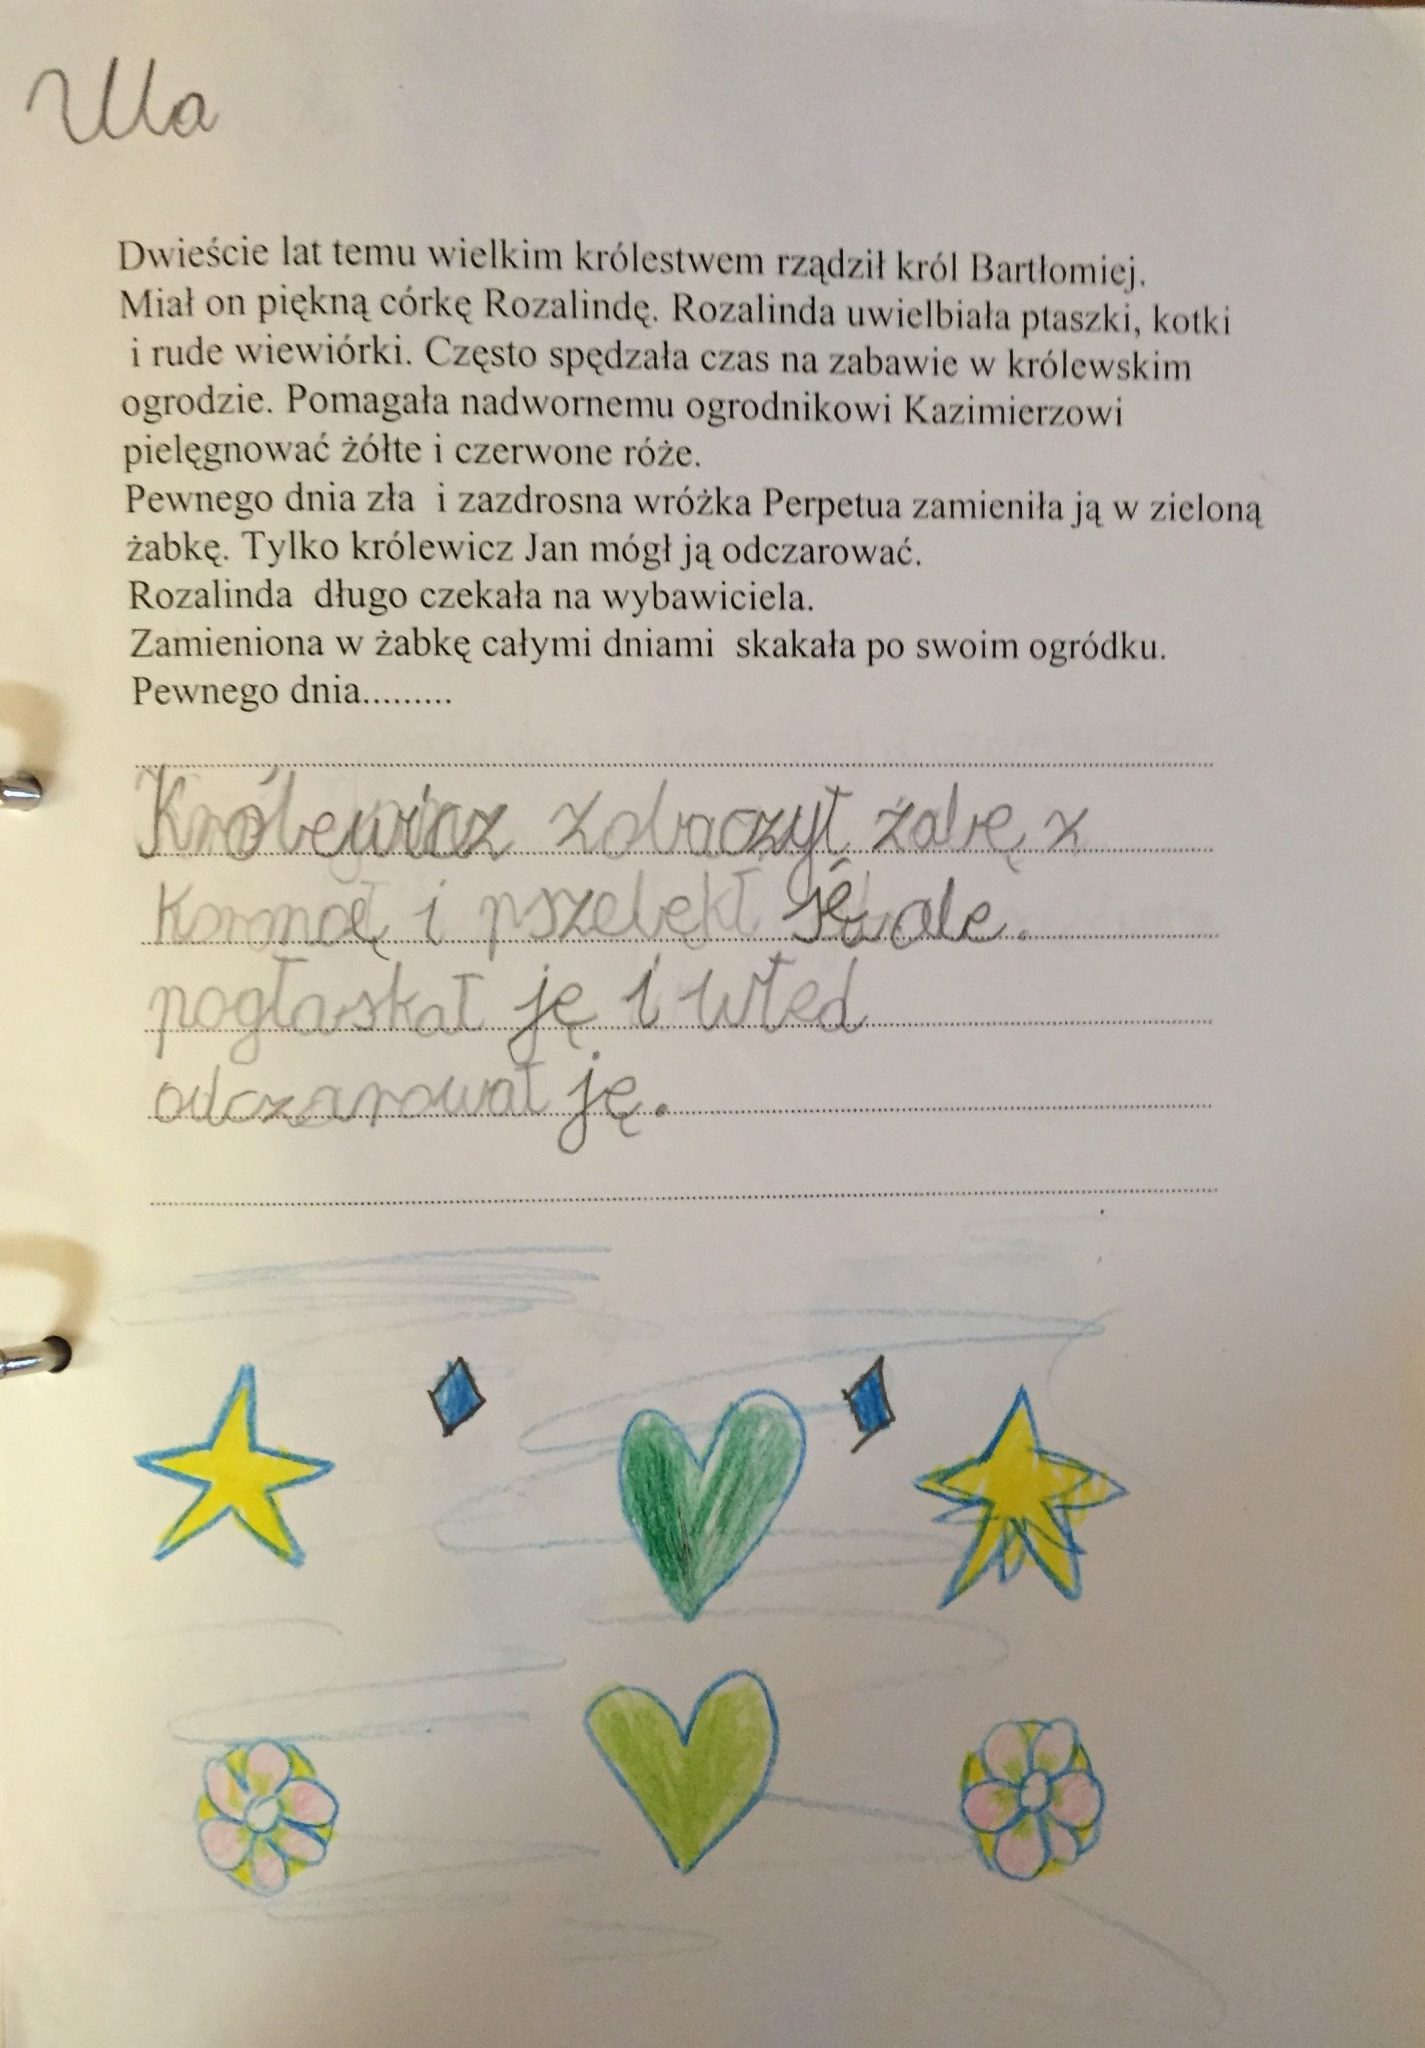 Ula
Dwieście lat temu wielkim królestwem rządził król Bartłomiej.
Miał on piękną córkę Rozalindę. Rozalinda uwielbiała ptaszki, kotki
i rude wiewiórki. Często spędzała czas na zabawie w królewskim
ogrodzie. Pomagała nadwornemu ogrodnikowi Kazimierzowi
pielęgnować żółte i czerwone róże.
Pewnego dnia zła i zazdrosna wróżka Perpetua zamieniła ją w zieloną
żabkę. Tylko królewicz Jan mógł ją odczarować.
Rozalinda długo czekała na wybawiciela.
Zamieniona w żabkę całymi dniami skakała po swoim ogródku.
Pewnego dnia.........
Królewicz zobaczył żabę z
i pszelękł się ale.
pogłaskał ję i wted
odczarował ję.